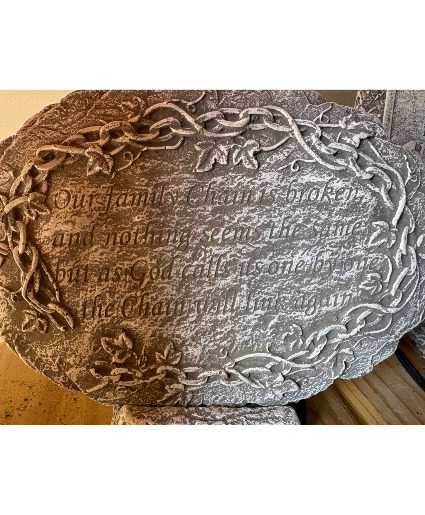 Our family Chain is broken,
and nothing seems the same,
but as God calls us one by one
the Chain will link again.